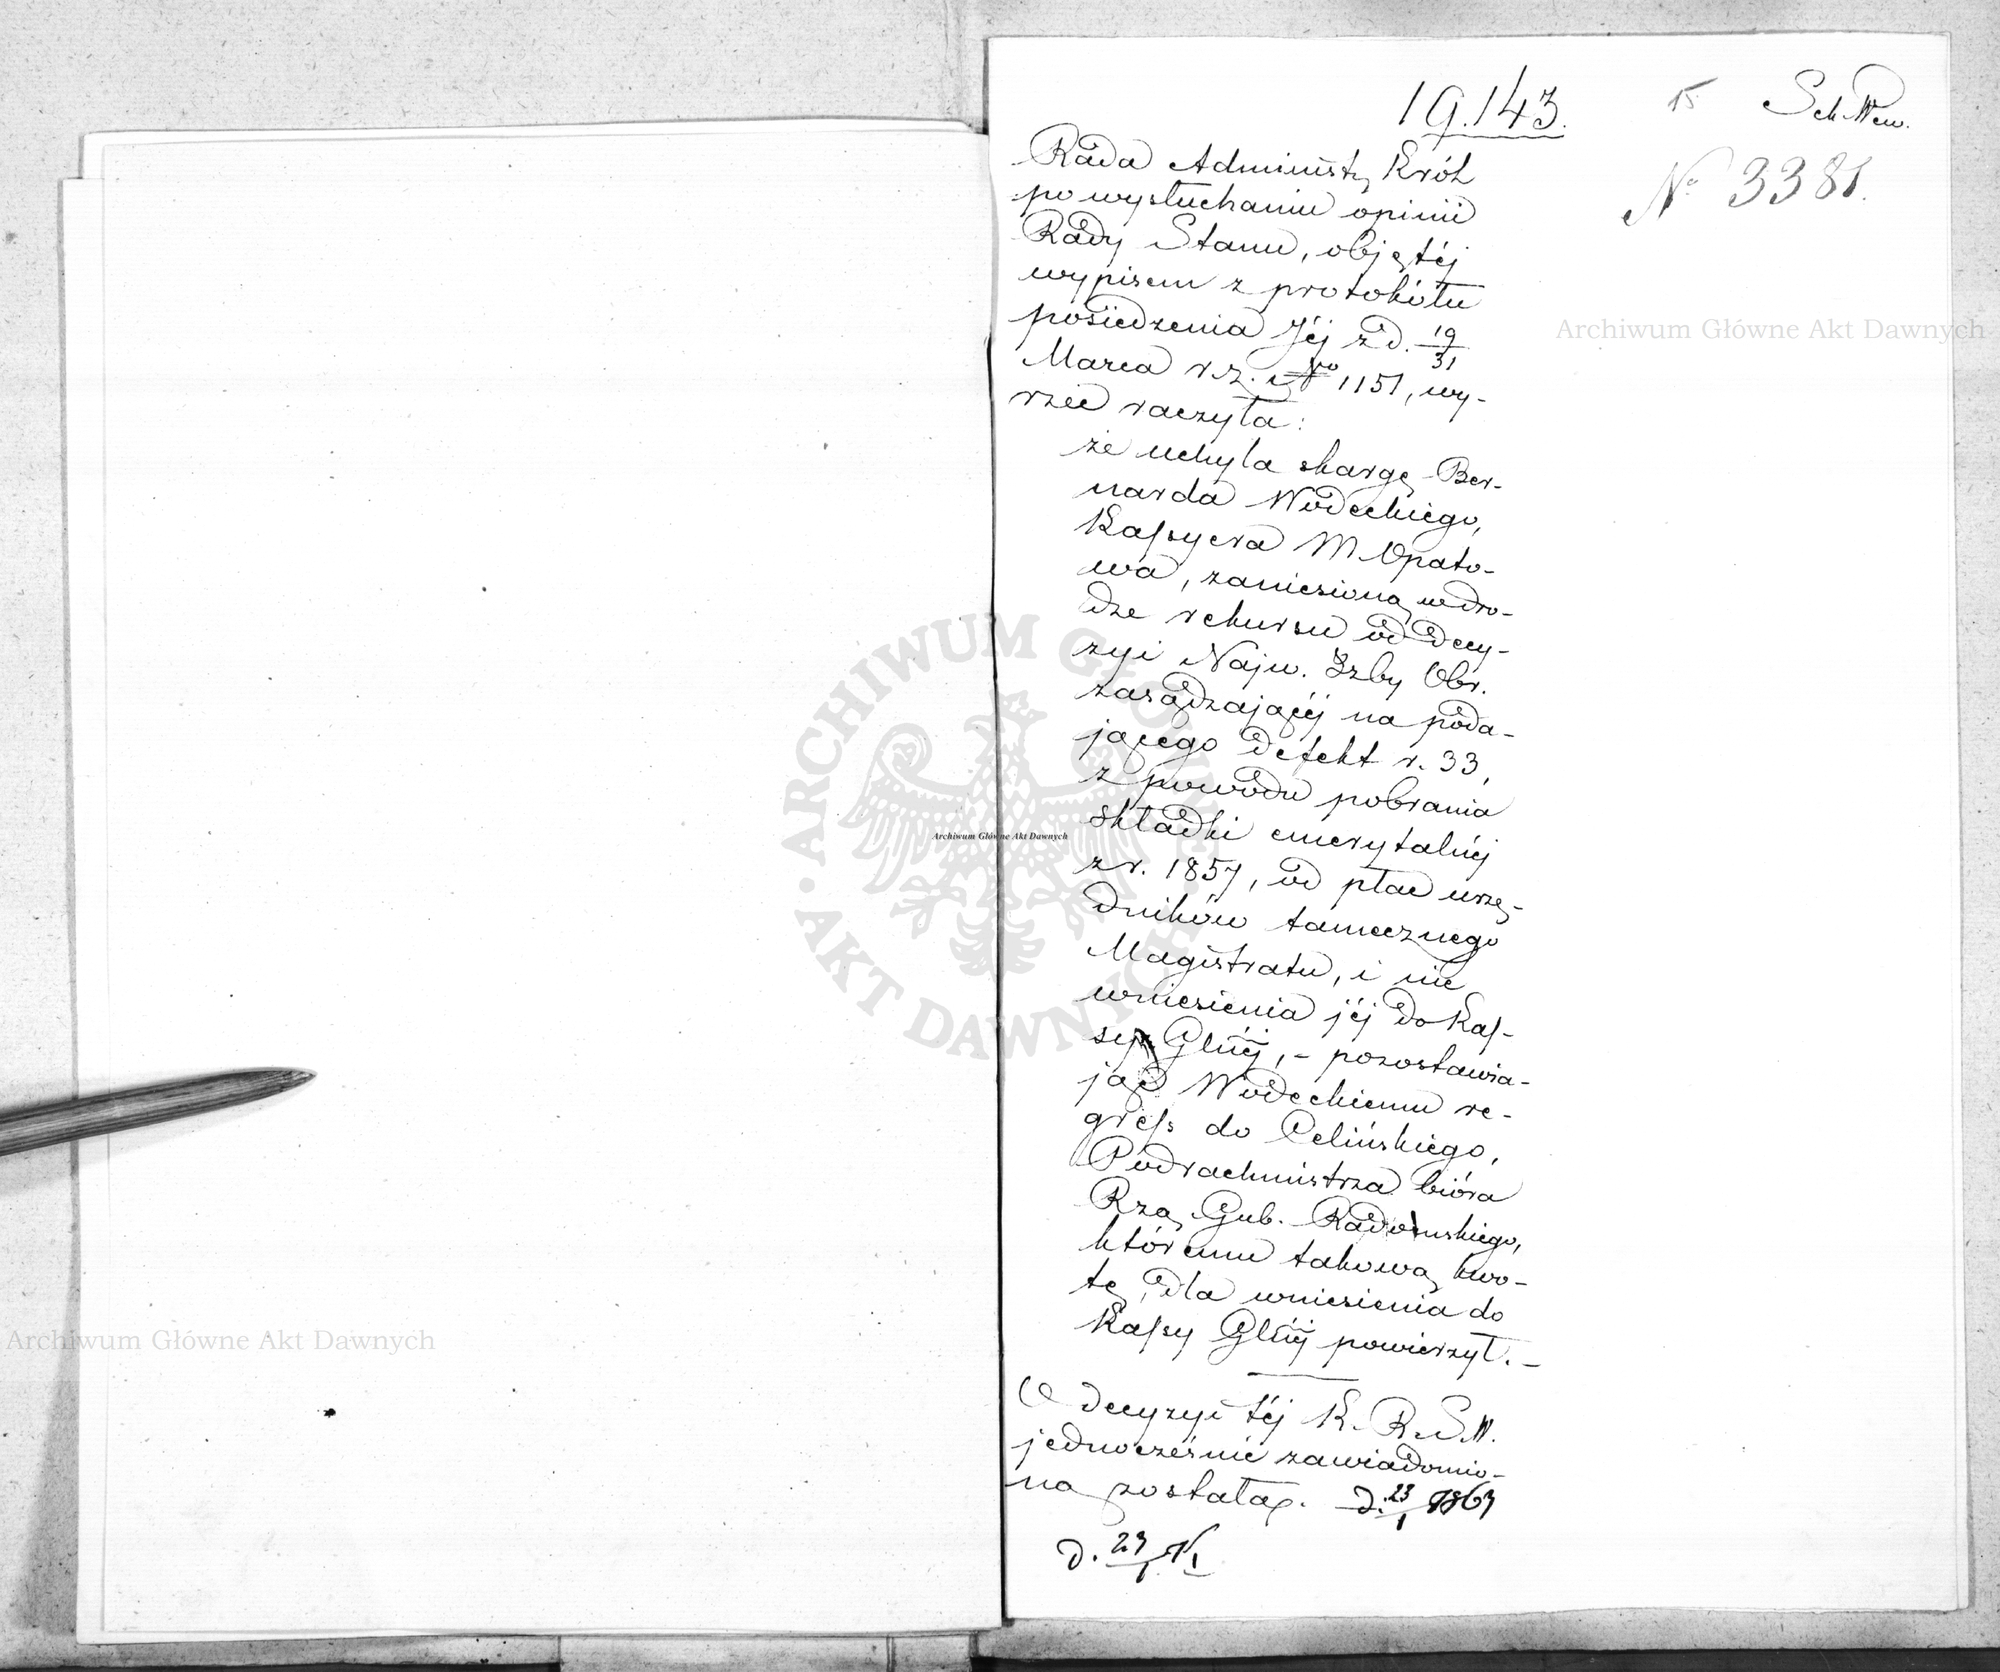 19.143.
15
Sch Wew.
№ 3381.
Rada Administr Król
po wysłuchaniu opinii
Rady Stanu, objętéj
wypisem z protokółu
posiedzenia Jéj z d. 19/31
Marca r.z. No 1151, wy-
rzec raczyła:
że uchyla skargę Ber-
narda Wodeckiego,
Kassyera M Opato-
wa, zaniesioną w dro-
dze rekursu od decy-
zyi Najw. Izby Obr.
zasądzającéj na poda-
jącego defekt r. 33,
z powodu pobrania
składki emerytalnéj
z r. 1857, od płac urzę-
dników tamecznego
Magistratu, i nie
wniesienia jéj do Kas-
sy Głnéj, - pozostawia-
jąc Wodeckiemu re-
gress do Celińskiego,
Podrachmistrza bióra
Rzą Gub. Radomskiego,
któremu takową kwo-
tę, dla wniesienia do
Kassy Głnéj powierzył. -
O decyzyi téj K. R. S. W.
jednocześnie zawiadomio-
na została. d. 23/1 1863
d. 23/1
Archiwum Główne Akt Dawnych
Archiwum Główne Akt Dawnych
Archiwum Główne Akt Dawnych
ARCHIWUM GŁÓWNE
AKT DAWNYCH